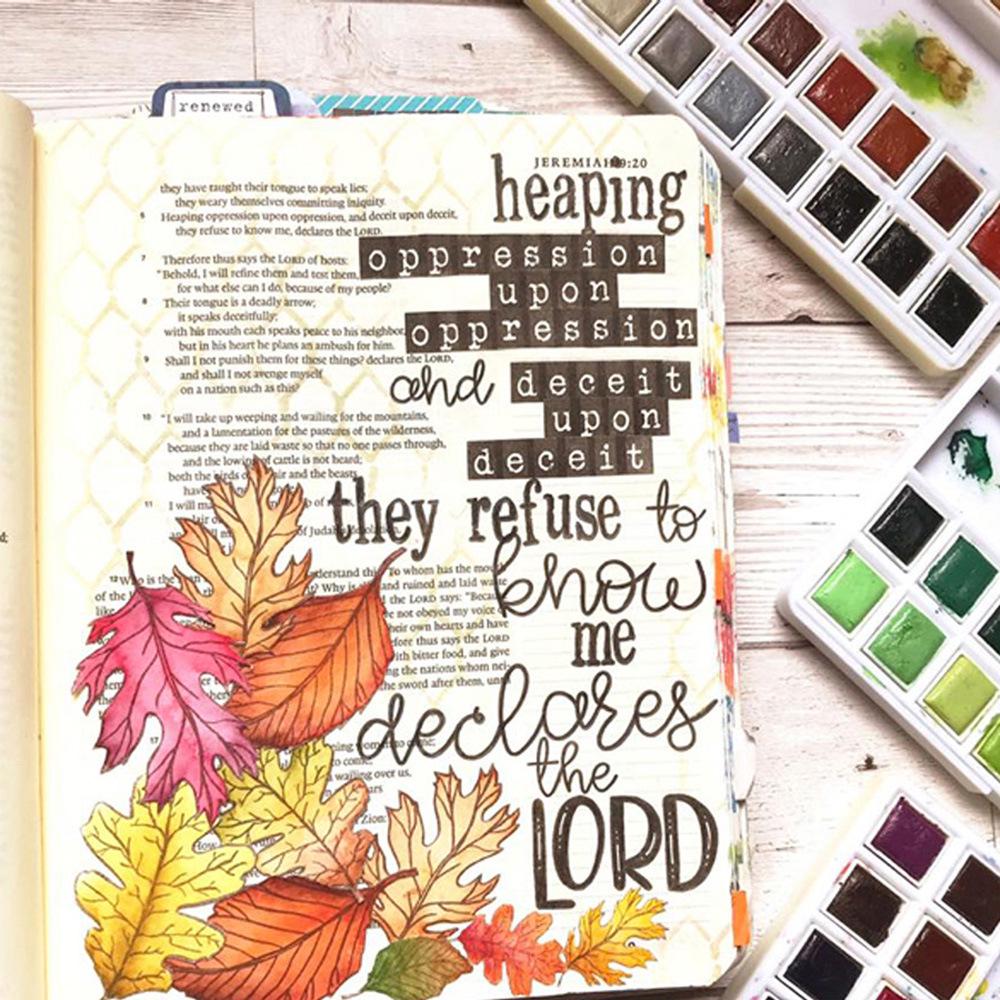 renewed
JEREMIAH 9:20
they have taught their tongue to speak lies;
they weary themselves committing iniquity.
6 Heaping oppression upon oppression, and deceit upon deceit,
they refuse to know me, declares the LORD.
7 Therefore thus says the LORD of hosts:
"Behold, I will refine them and test them,
for what else can I do, because of my people?
8 Their tongue is a deadly arrow;
it speaks deceitfully;
with his mouth each speaks peace to his neighbor,
but in his heart he plans an ambush for him.
9 Shall I not punish them for these things? declares the LORD,
and shall I not avenge myself
on a nation such as this?
10 "I will take up weeping and wailing for the mountains,
and a lamentation for the pastures of the wilderness,
because they are laid waste so that no one passes through,
and the lowing of cattle is not heard;
both the birds of air and the beasts
11 I will
of Judah
12 Who is the
derstand this? To whom has the
of the
? Why is and ruined and laid
like
the LORD says:
not obeyed my voice
their own hearts and have
thus says the LORD
with bitter food, and give
the nations whom
the sword after them,
17
to come;
wailing over us,
Zion:
heaping
oppression
upon
oppression
and deceit
upon
deceit
they refuse to
know
me
declares
the
LORD